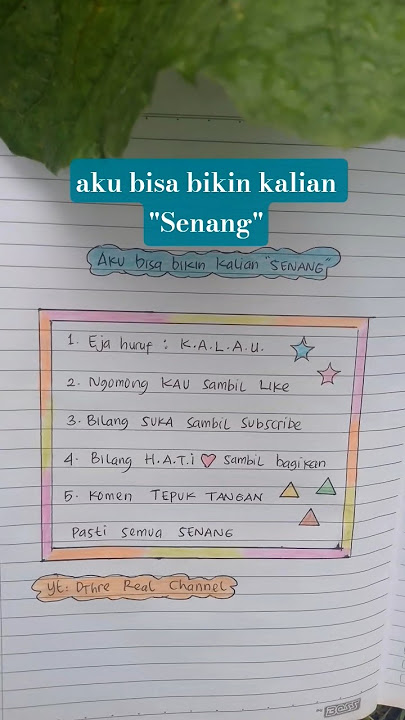 aku bisa bikin kalian
"Senang"
Aku bisa bikin kalian "SENANG"
1. Eja huruf : K.A.L.A.U.
2. Ngomong KAU sambil LIKE
3. Bilang SUKA sambil Subscribe
4. Bilang H.A.T.i sambil bagikan
5. Komen TEPUK TANGAN
Pasti semua SENANG
yt: DThre Real Channel
BOSS